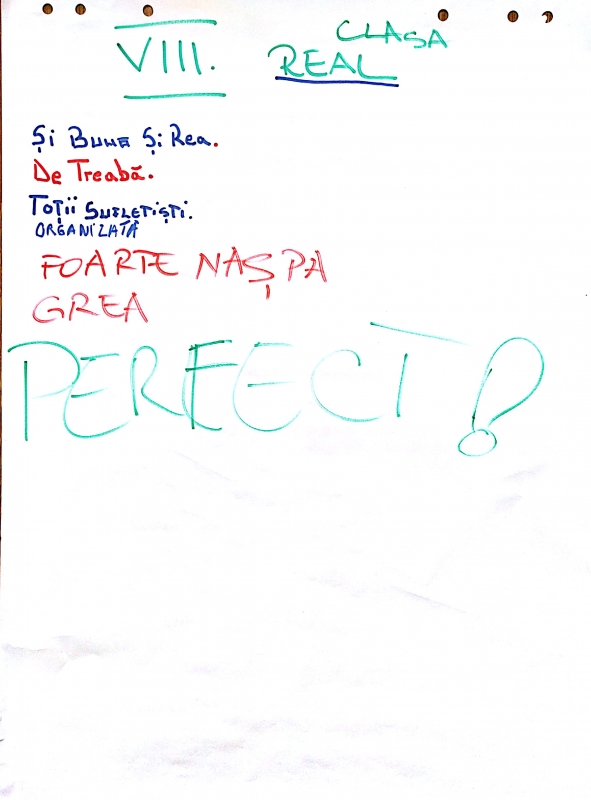 VIII. CLASA
REAL
Și Bună Și Rea.
De Treabă.
Toții Sufletiști.
ORGANIZATĂ
FOARTE NAȘPA
GREA
PERFECT!